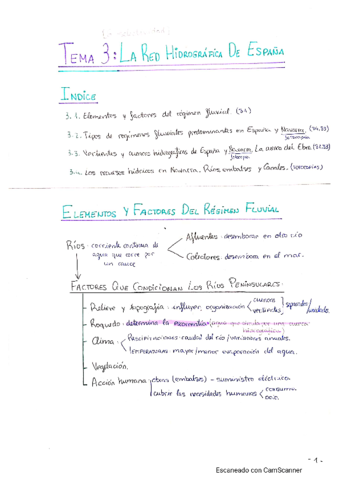 TEMA 3: LA RED HIDROGRÁFICA DE ESPAÑA
INDICE
3.1. Elementos y factores del régimen fluvial. (3.1)
3.2. Tipos de regímenes fluviales predominantes en España y Navarra.
3.3. Vertientes y cuencas hidrográficas de España y Navarra. La cuenca del Ebro.
3.4. Los recursos hídricos en Navarra. Ríos, embalses y Canales.
ELEMENTOS Y FACTORAS DEL RÉGIMEN FLUVIAL
RÍOS - corriente continua de
agua que corre por
un cauce
Afluentes: desembocan en otro río
Colectores: desembocan en el mar.
FACTORES QUE CONDICIONAN LOS RÍOS PENINSULARES:
Relieve y topografía - influyen organización
cuencas
vertientes
Roquedo: determina la escorrentía (agua que circula por una cuenca
hidrográfica)
Clima
Precipitaciones: caudal del río / variaciones anuales.
Temperaturas: mayor/menor evaporación del agua.
Vegetación.
Acción humana
obras (embalses) - suministro eléctrico
cubrir las necesidades humanas
consumo
ocio.
- 1 -
Escaneado con CamScanner